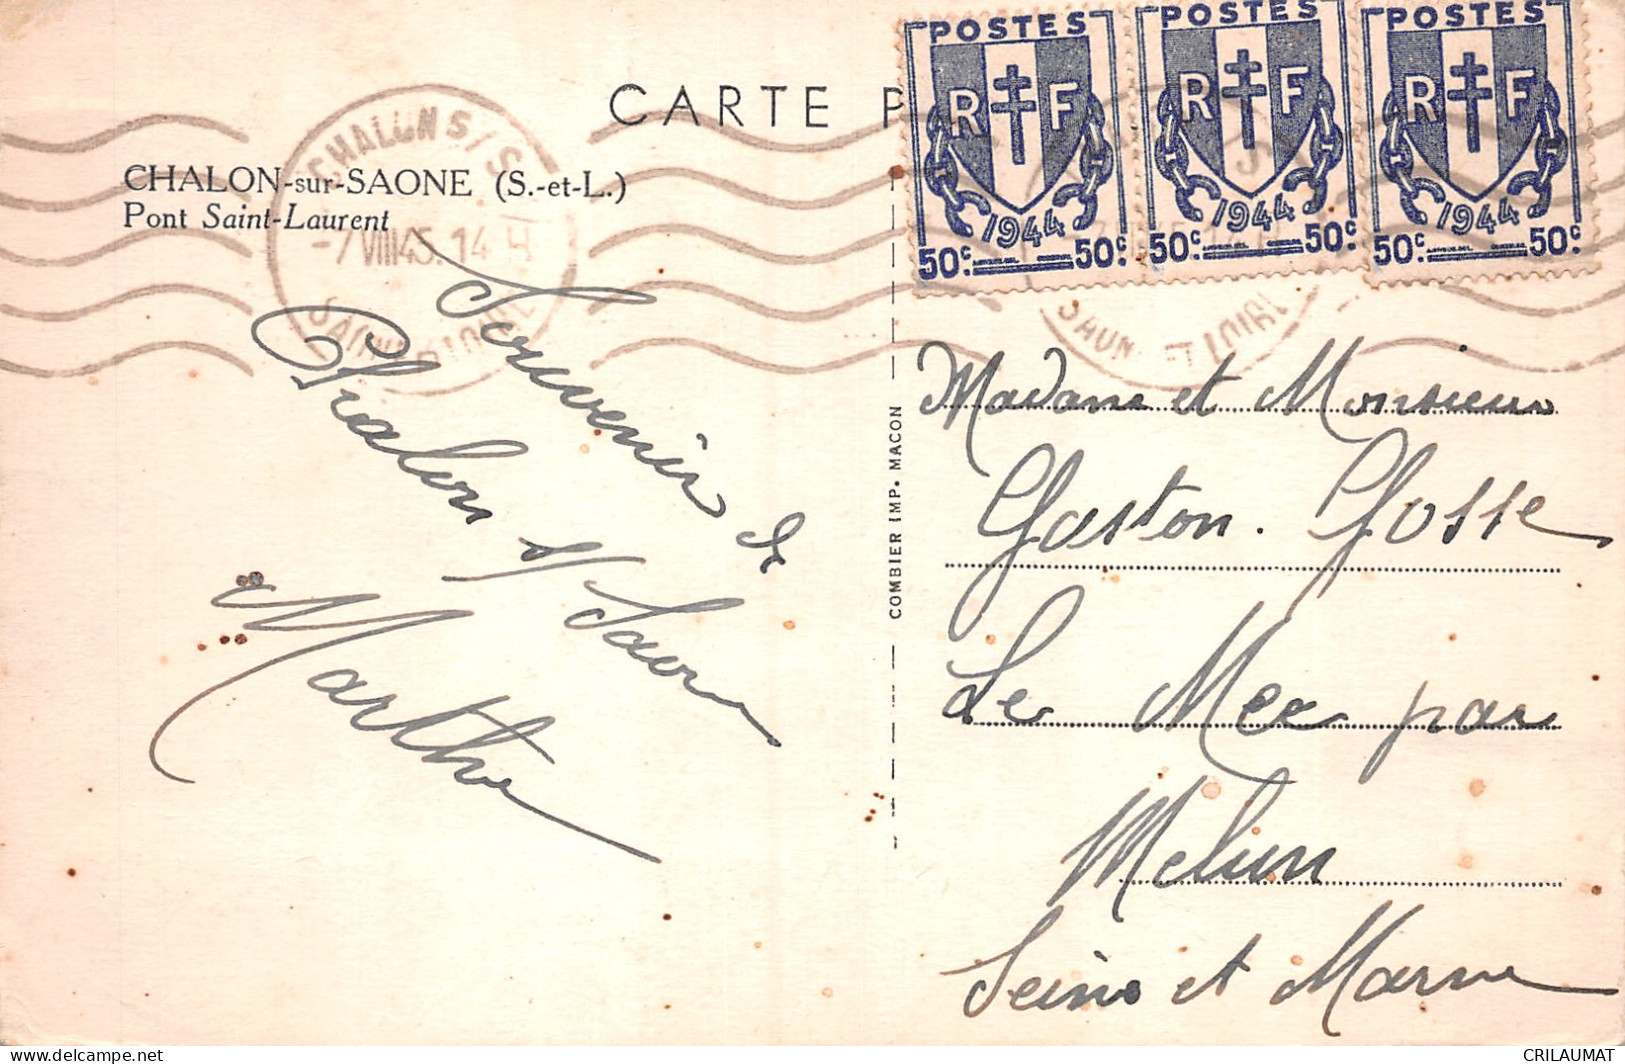 CARTE P
CHALON-sur-SAONE (S.-et-L.)
Pont Saint-Laurent
CHALON S/S
-7 VIII 45. 14 H
SAONE ET LOIRE
POSTES
RF
1944
50c 50c
POSTES
RF
1944
50c 50c
POSTES
RF
1944
50c 50c
S
SAON ET LOIRE
Souvenir de
Chalon s/ Saone
Marthe
COMBIER IMP. MACON
Madame et Monsieur
Gaston. Gosse
Le Mee par
Melun
Seine et Marne
CRILAUMAT